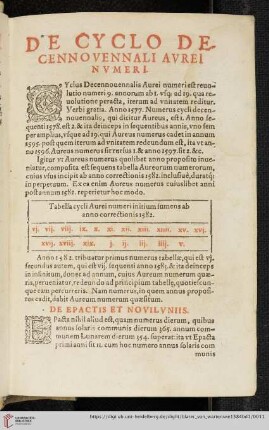 DE CYCLO DE-
CENNOVENNALI AVREI
NVMERI.
CYclus Decennouennalis Aurei numeri est reuo-
lutio numeri 9. annorum ab 1. vsq; ad 19. qua re-
uolutione peracta, iterum ad vnitatem reditur.
Verbi gratia. Anno 1577. Numerus cycli decen-
nouennalis, qui dicitur Aureus, est 1. Anno se-
quenti 1578. est 2. & ita deinceps in sequentibus annis, vno sem
per amplius, vsque ad 19. qui Aureus numerus cadet in annum
1595. post quem iterum ad vnitatem redeundum est, ita vt an-
no 1596. Aureus numerus sit rursus 1. & anno 1597. sit 2. &c.
Igitur vt Aureus numerus quolibet anno proposito inue-
niatur, composita est sequens tabella Aureorum numerorum,
cuius vsus incipit ab anno correctionis 1582. inclusiuè, duratq;
in perpetuum. Ex ea enim Aureus numerus cuiuslibet anni
post annum 1582. reperietur hoc modo.
Tabella cycli Aurei numeri initium sumens ab
anno correctionis 1582.
vj. vij. viij. ix. x. xi. xii. xiii. xiiii. xv. xvj.
xvij. xviij. xix. j. ij. iij. iiij. v.
Anno 1582. tribuatur primus numerus tabellæ, qui est vj.
secundus autem, qui est vij. sequenti anno 1583. & ita deinceps
in infinitum, donec ad annum, cuius Aureum numerum quæ-
ris, perueniatur, redeundo ad principium tabellæ, quotiescun-
que eam percurreris. Nam numerus, in quem annus proposi-
tus cadit, dabit Aureum numerum quæsitum.
DE EPACTIS ET NOVILVNIIS.
EPacta nihil aliud est, quàm numerus dierum, quibus
annus solaris communis dierum 365. annum com-
munem Lunarem dierum 354. superat: ita vt Epacta
primi anni sit 11. cum hoc numero annus solaris com
munis